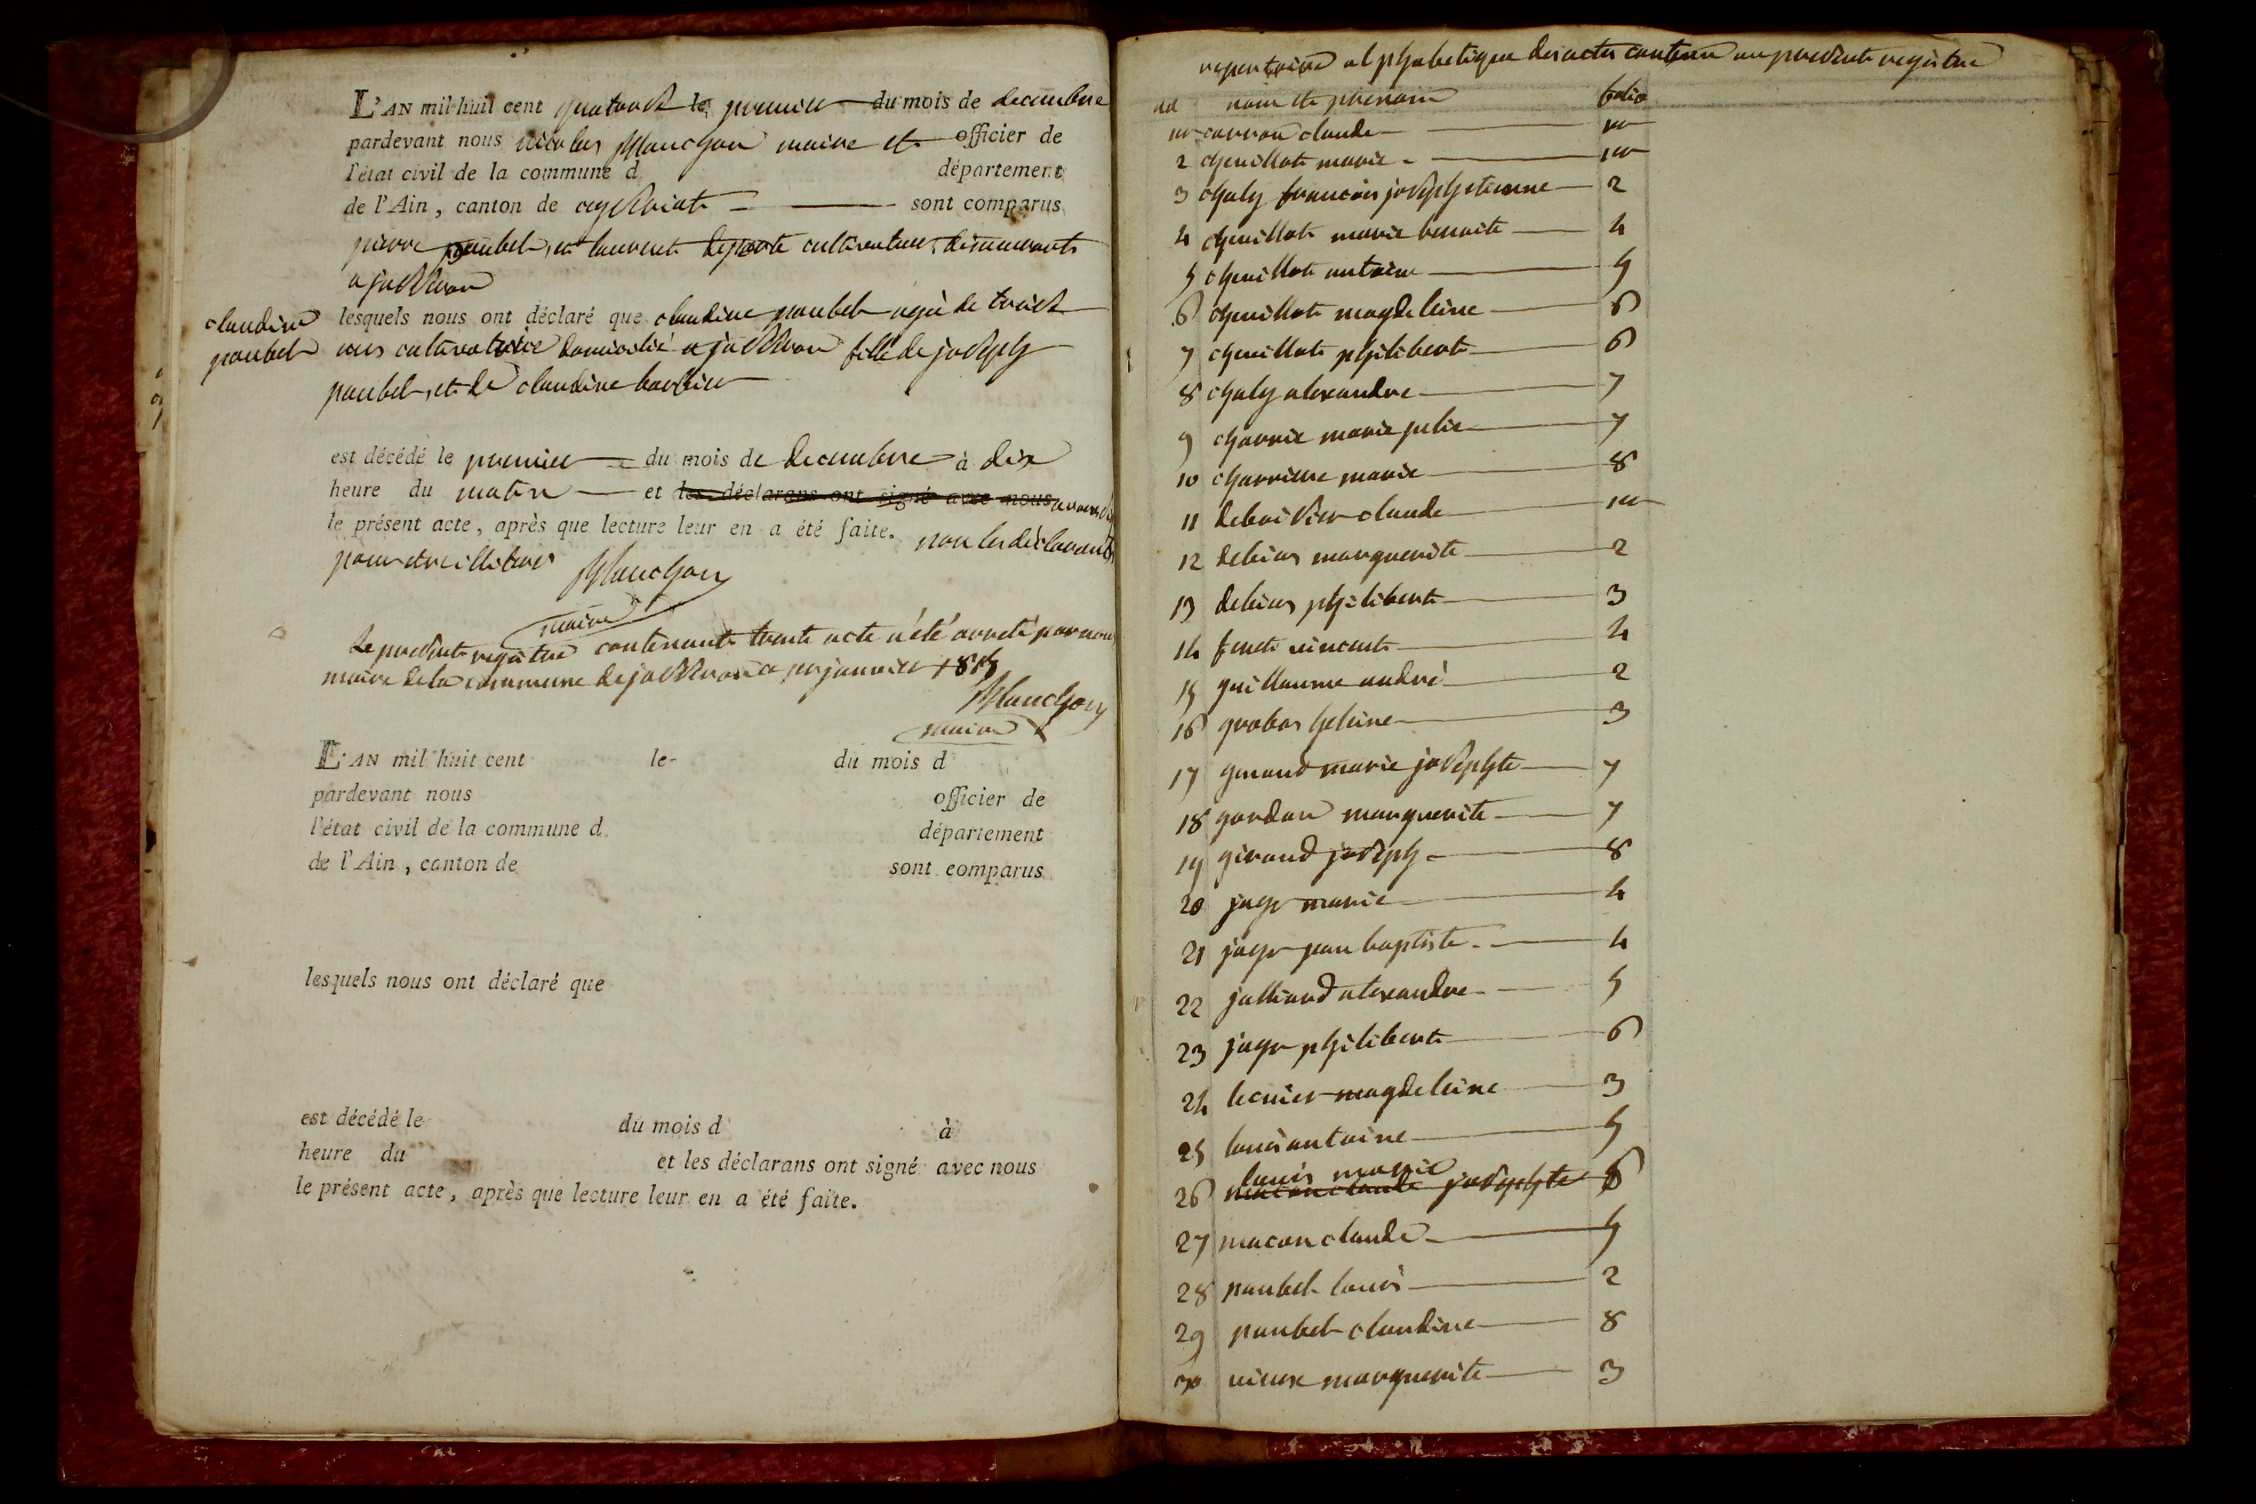 L'AN mil huit cent quatorze le premier du mois de decembre
pardevant nous nicolas planchon maire et officier de
l'état civil de la commune d département
de l'Ain, canton de ceyzeriat sont comparus
pierre paubel, et laurent deporte cultivateurs demeurants
a jasseron
claudine
paubel
lesquels nous ont déclaré que claudine paubel agée de treize
ans cultivatrice domicilié a jasseron fille de joseph
paubel, et de claudine
est décédé le premier du mois de decembre à dix
heure du matin et les déclarans ont signé avec nous
le présent acte, après que lecture leur en a été faite. non les déclarants
pour etre illitérés planchon
maire
le present registre contenant trente acte a été arreté par nous
maire de la commune de jasseron ce 1er janvier 1815
planchon
maire
L'AN mil huit cent le du mois d
pardevant nous officier de
l'état civil de la commune d département
de l'Ain, canton de sont comparus
lesquels nous ont déclaré que
est décédé le du mois d à
heure du et les déclarans ont signé avec nous
le présent acte, après que lecture leur en a été faite.
repertoire alphabetique des actes contenu au present registre
no nom et prenom folio
1er carron claude 1er
2 chevillot marie 1er
3 chaly francois joseph etienne 2
4 chevillot marie benoite 4
5 chevillot antoine 5
6 chevillot magdeleine 6
7 chevillot philibert 6
8 chaly alexandre 7
9 charrie marie julie 7
10 charriere marie 8
11 deboissier claude 1er
12 debias marguerite 2
13 debias philibert 3
14 feret vincent 4
15 guillaume andré 2
16 grabas helene 3
17 gerand marie josephte 7
18 gordan marguerite 7
19 girand joseph 8
20 jayr marie 4
21 jayr jean baptiste 4
22 julliard alexandre 5
23 jayr philibert 6
24 lecuier magdeleine 3
25 louis antoine 5
louis marie
26 macon claude josephte 6
27 macon claude 5
28 paubel louis 2
29 paubel claudine 8
30 vieux marguerite 3